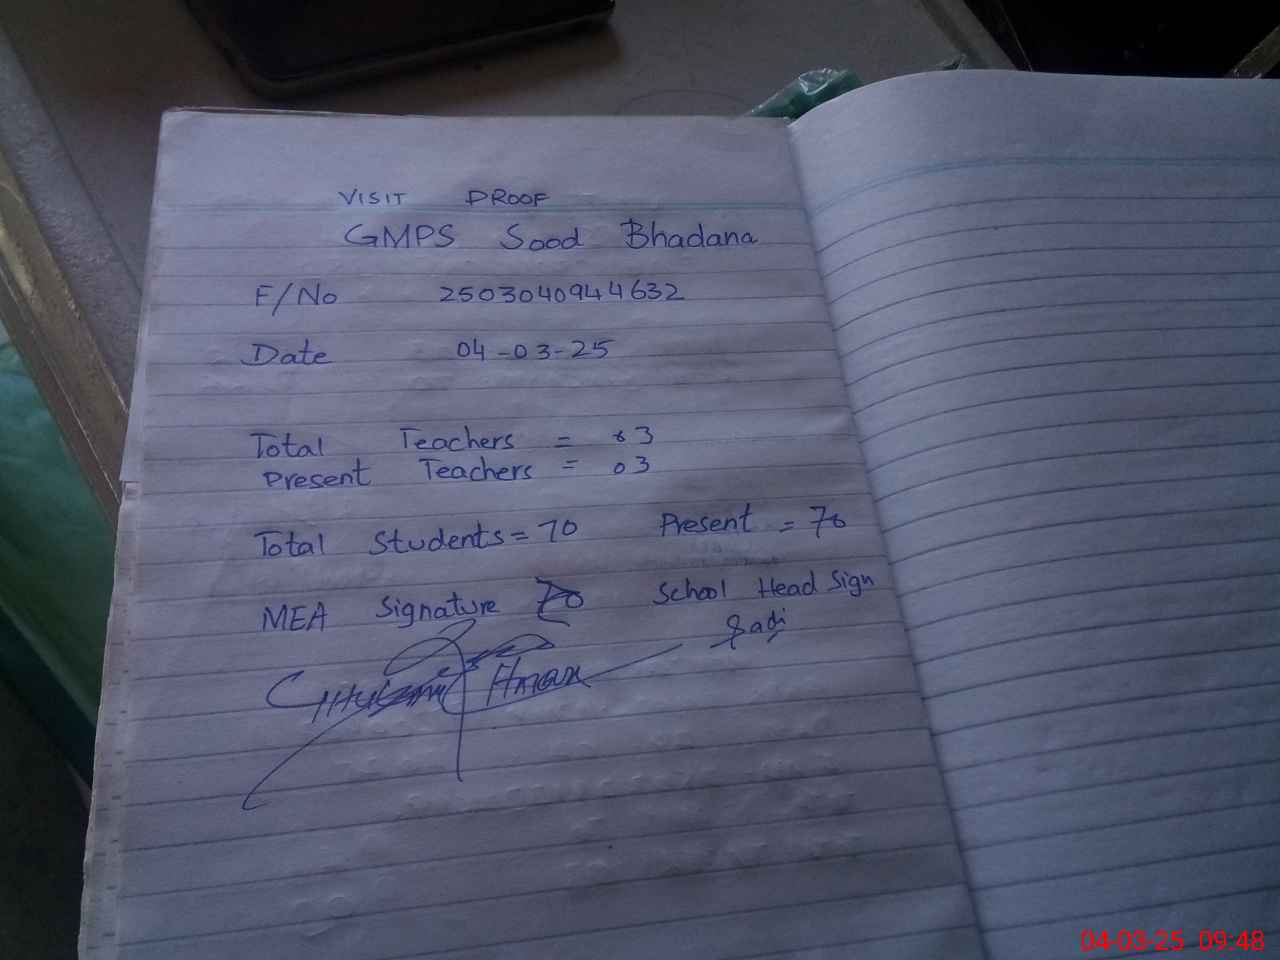 VISIT PROOF
GMPS Sood Bhadana
F/No 2503040944632
Date 04-03-25
Total Teachers = 03
Present Teachers = 03
Total Students = 70 Present = 70
MEA Signature School Head Sign
04-03-25 09:48